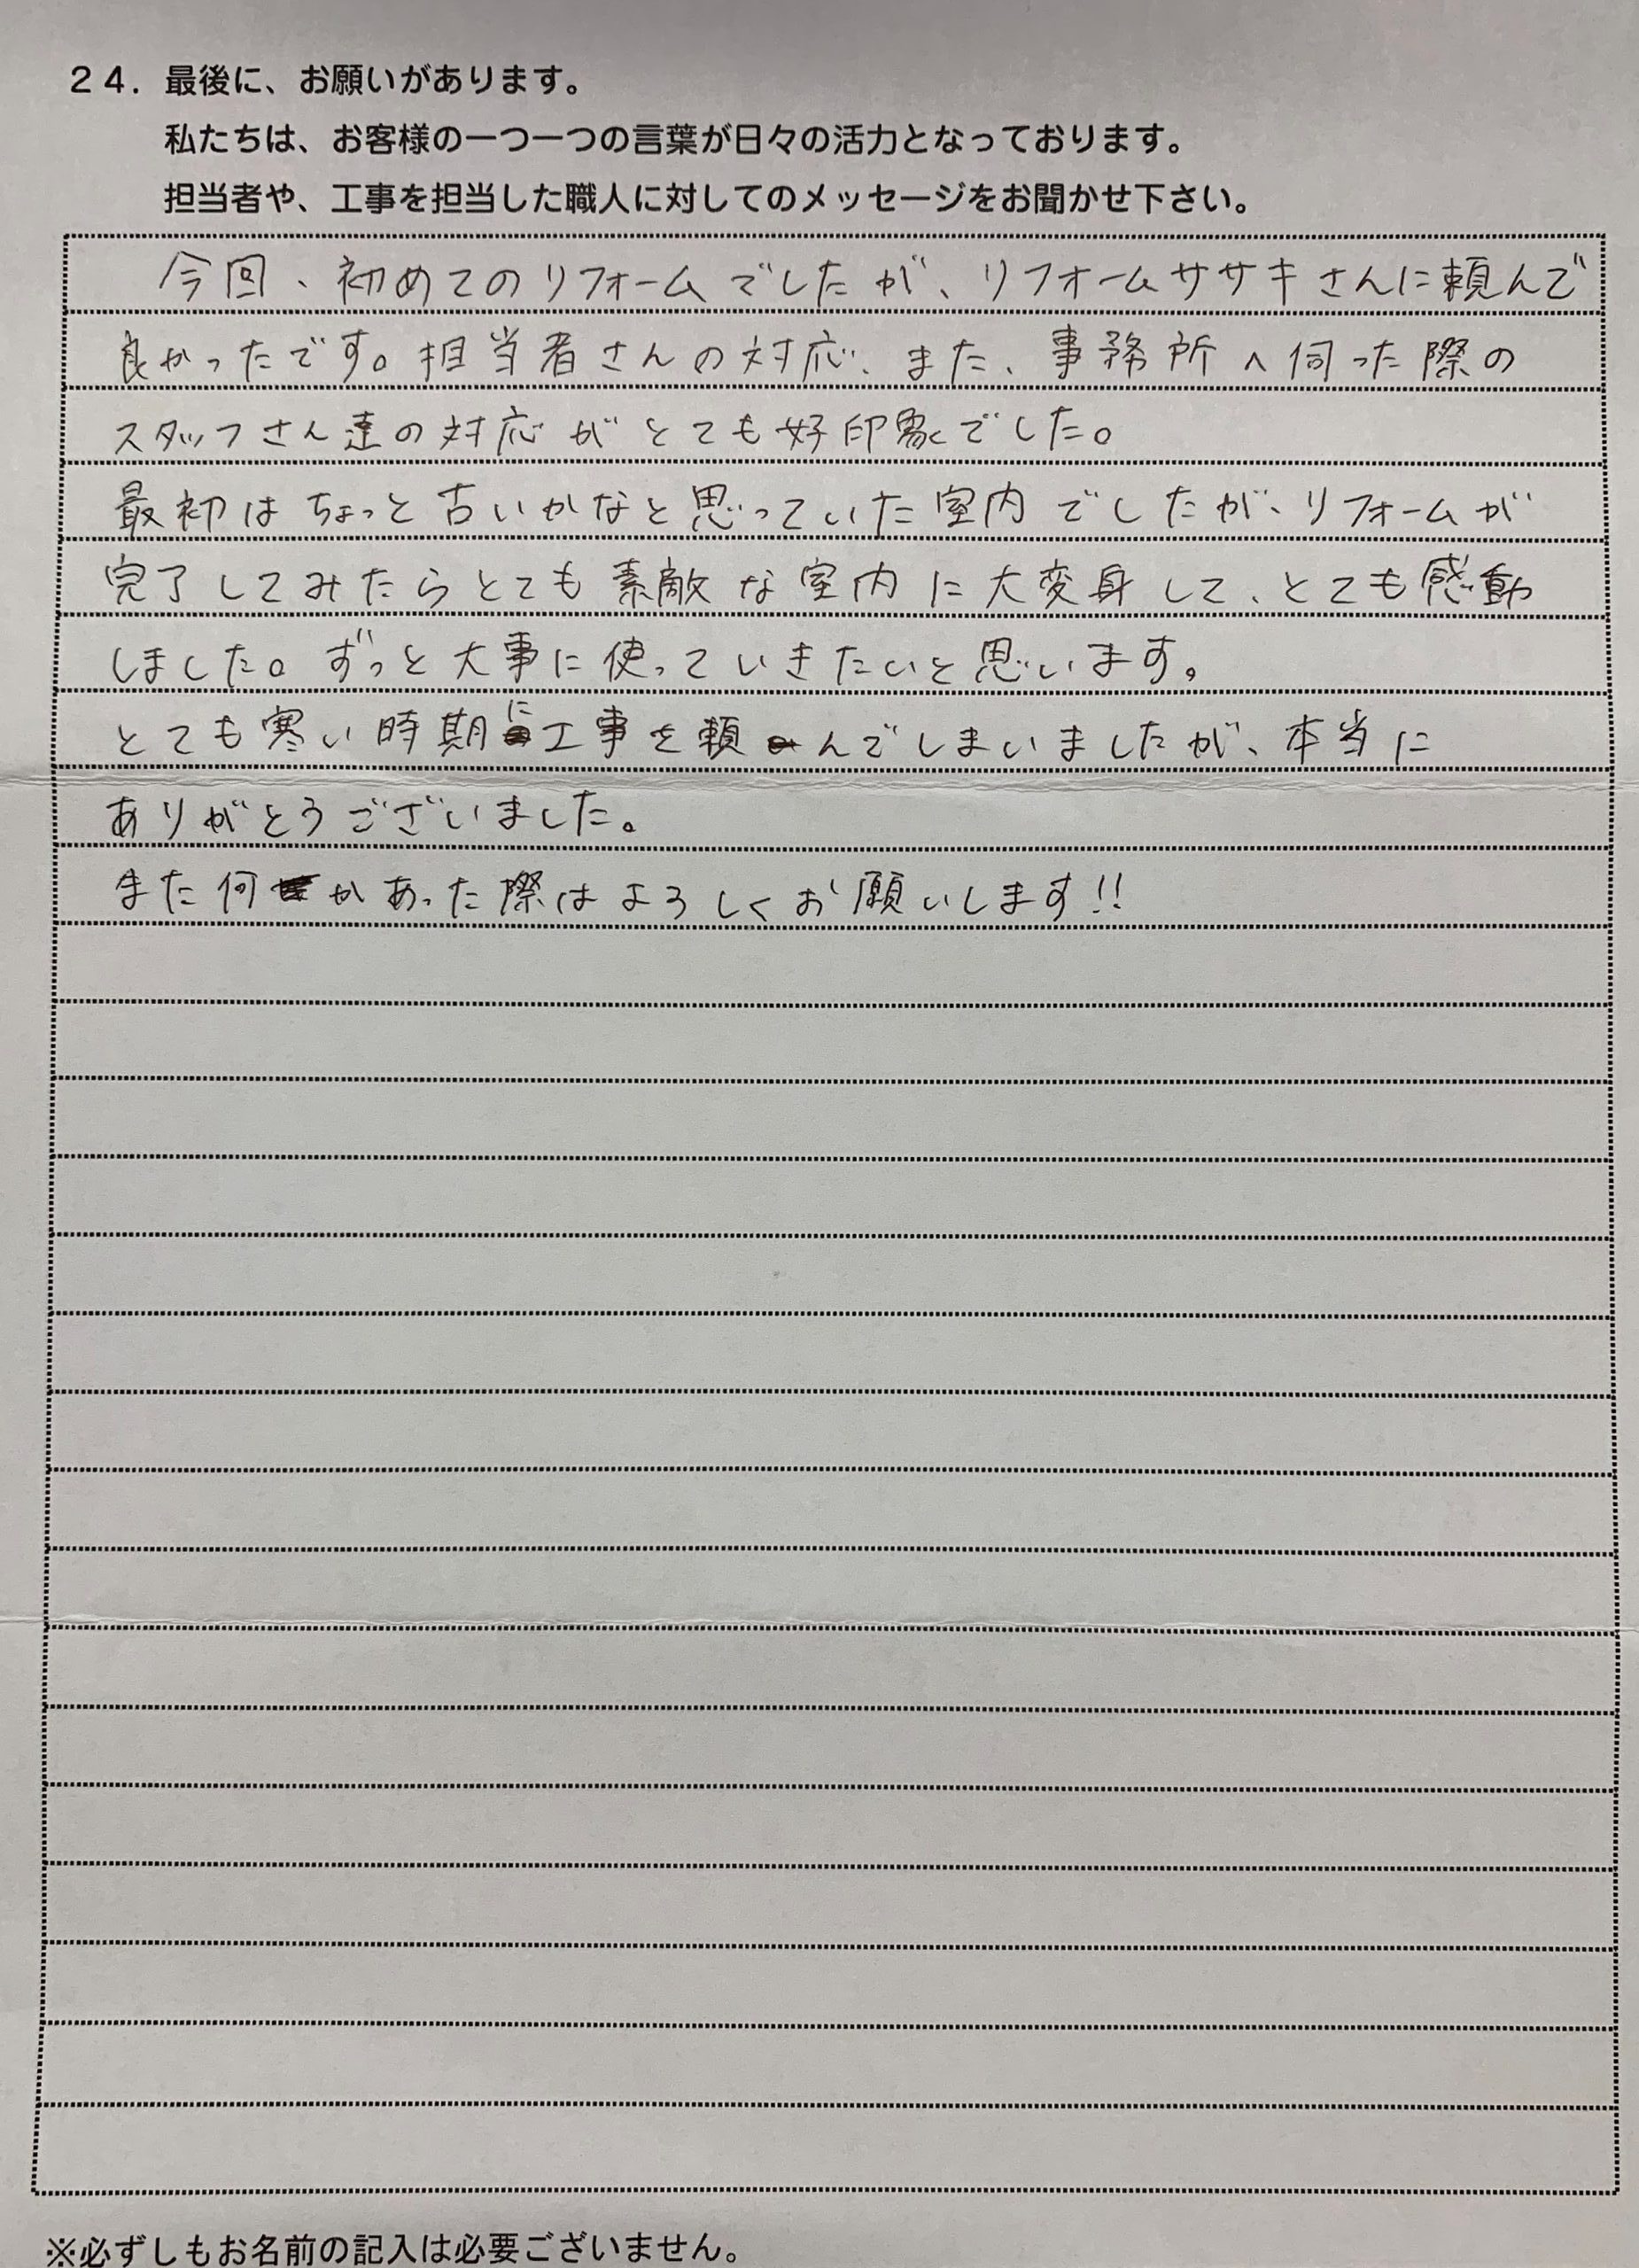 24. 最後に、お願いがあります。
私たちは、お客様の一つ一つの言葉が日々の活力となっております。
担当者や、工事を担当した職人に対してのメッセージをお聞かせ下さい。
今回、初めてのリフォームでしたが、リフォームササキさんに頼んで
良かったです。担当者さんの対応、また、事務所へ伺った際の
スタッフさん達の対応がとても好印象でした。
最初はちょっと古いかなと思っていた室内でしたが、リフォームが
完了してみたらとても素敵な室内に大変身して、とても感動
しました。ずっと大事に使っていきたいと思います。
とても寒い時期に工事を頼んでしまいましたが、本当に
ありがとうございました。
また何かあった際はよろしくお願いします!!
※必ずしもお名前の記入は必要ございません。